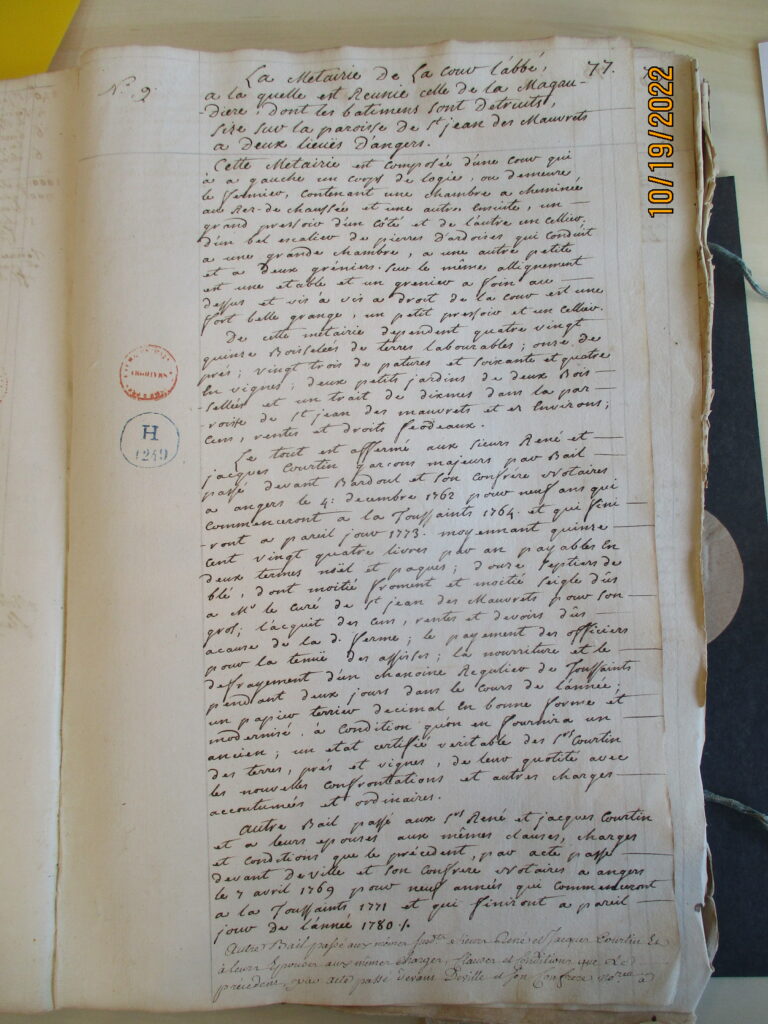 N.º 2
77.
La Metairie de La cour l'abbé,
a la quelle est Reunie celle de la Magau-
diere, dont les batimens sont detruits,
size sur la paroisse de St jean des Mauvrets
a Deux lieuës D'angers.
Cette Metairie est composée d'une cour qui
à a gauche un corps de logie, ou demeure
le fermier, contenant une chambre a cheminée
au Rez-de chaussée et une autre ensuite, un
grand pressoir d'un côté et de l'autre un cellier.
d'un bel escalier de pierres d'ardoises qui conduit
a une grande chambre, a une autre petite
et a Deux gréniers. sur le même allignement
est une etable et un grenier a foin au
dessus et vis à vis a droit de la cour est une
fort belle grange, un petit pressoir et un cellier.
De cette métairie dependent quatre vingt
quinze Boisselées de terres labourables; onze de
prés; vingt trois de patures et soixante et quatre
en vignes; deux petits jardins de deux Bois-
sellées et un trait de dixmes dans la par-
roisse de St jean des mauvrets et es Environs;
cens, ventes et droits feodeaux.
Le tout est affermé aux sieurs René et
jacques Courtin garçons majeurs par Bail
passé devant Bardoul et son confrére Notaires
a angers le 4: decembre 1762 pour neuf ans qui
commenceront a la Toussaints 1764. et qui fini-
ront a pareil jour 1773. moyennant quinze
cent vingt quatre livres par an payables En
deux termes noël et paques; douze septiers de
blé, dont moitié froment et moitié seigle dûs
a Mr. le curé de St jean des Mauvrets pour son
gros; l'acquit des cens, ventes et devoirs dûs
acause de la d. ferme; le payement des officiers
pour la tenuë des assises; la nourriture et le
deffrayement d'un chanoine Regulier de Toussaints
pendant deux jours dans le cours de l'année;
un papier terrier decimal En bonne forme et
modernisé, à condition qu'on en fournira un
ancien; un etat certifié veritable des Srs Courtin
des terres, prés et vignes, de leur quotité avec
les nouvelles confrontations et autres charges
accoutumées et ordinaires.
Autre Bail passé aux Srs René et jacques Courtin
et a leurs epouses aux mêmes clauses, charges
et conditions que le précédent, par acte passé
devant Deville et son Confrere Notaires a angers
le 7 avril 1769 pour neuf années qui commenceront
a la Toussaints 1771 et qui finiront a pareil
jour de l'année 1780 /.
Autre Bail passé aux mêmes sieurs René et Jacques Courtin et
à leurs Epouses aux mêmes charges, clauses et conditions que le
précédent, par acte passé devant Deville et son Confrere Notres à
ARCHIVES
H
1249
10/19/2022